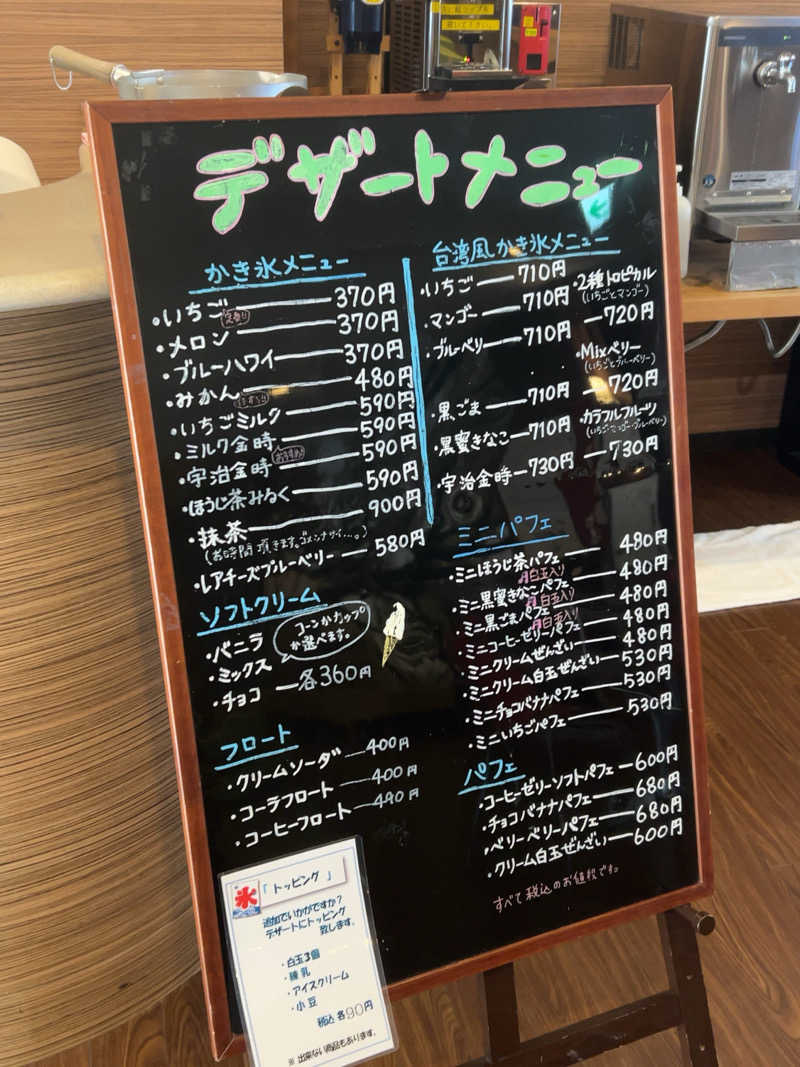 デザートメニュー
かき氷メニュー
・いちご 370円
・メロン 370円
・ブルーハワイ 370円
・みかん 480円
・いちごミルク 590円
・ミルク金時 590円
・宇治金時 おすすめ 590円
・ほうじ茶みるく 590円
・抹茶 900円
(お時間頂きます。ゴメンナサイ…。)
・レアチーズブルーベリー 580円
台湾風かき氷メニュー
・いちご 710円
・マンゴー 710円
・ブルーベリー 710円
・黒ごま 710円
・黒蜜きなこ 710円
・宇治金時 730円
・2種トロピカル
(いちごとマンゴー)
720円
・Mixベリー
(いちごとブルーベリー)
720円
・カラフルフルーツ
(いちごマンゴーブルーベリー)
730円
ソフトクリーム
・バニラ
・ミックス
・チョコ 各360円
コーンかカップ
か選べます。
フロート
・クリームソーダ 400円
・コーラフロート 400円
・コーヒーフロート 490円
ミニパフェ
・ミニほうじ茶パフェ 480円
白玉入り
・ミニ黒蜜きなこパフェ 480円
白玉入り
・ミニ黒ごまパフェ 480円
白玉入り
・ミニコーヒーゼリーパフェ 480円
・ミニクリームぜんざい 480円
・ミニクリーム白玉ぜんざい 530円
・ミニチョコバナナパフェ 530円
・ミニいちごパフェ 530円
パフェ
・コーヒーゼリーソフトパフェ 600円
・チョコバナナパフェ 680円
・ベリーベリーパフェ 680円
・クリーム白玉ぜんざい 600円
すべて税込のお値段です。
氷
「トッピング」
追加でいかがですか?
デザートにトッピング
致します。
・白玉3個
・練乳
・アイスクリーム
・小豆
税込各90円
※出来ない商品もあります。